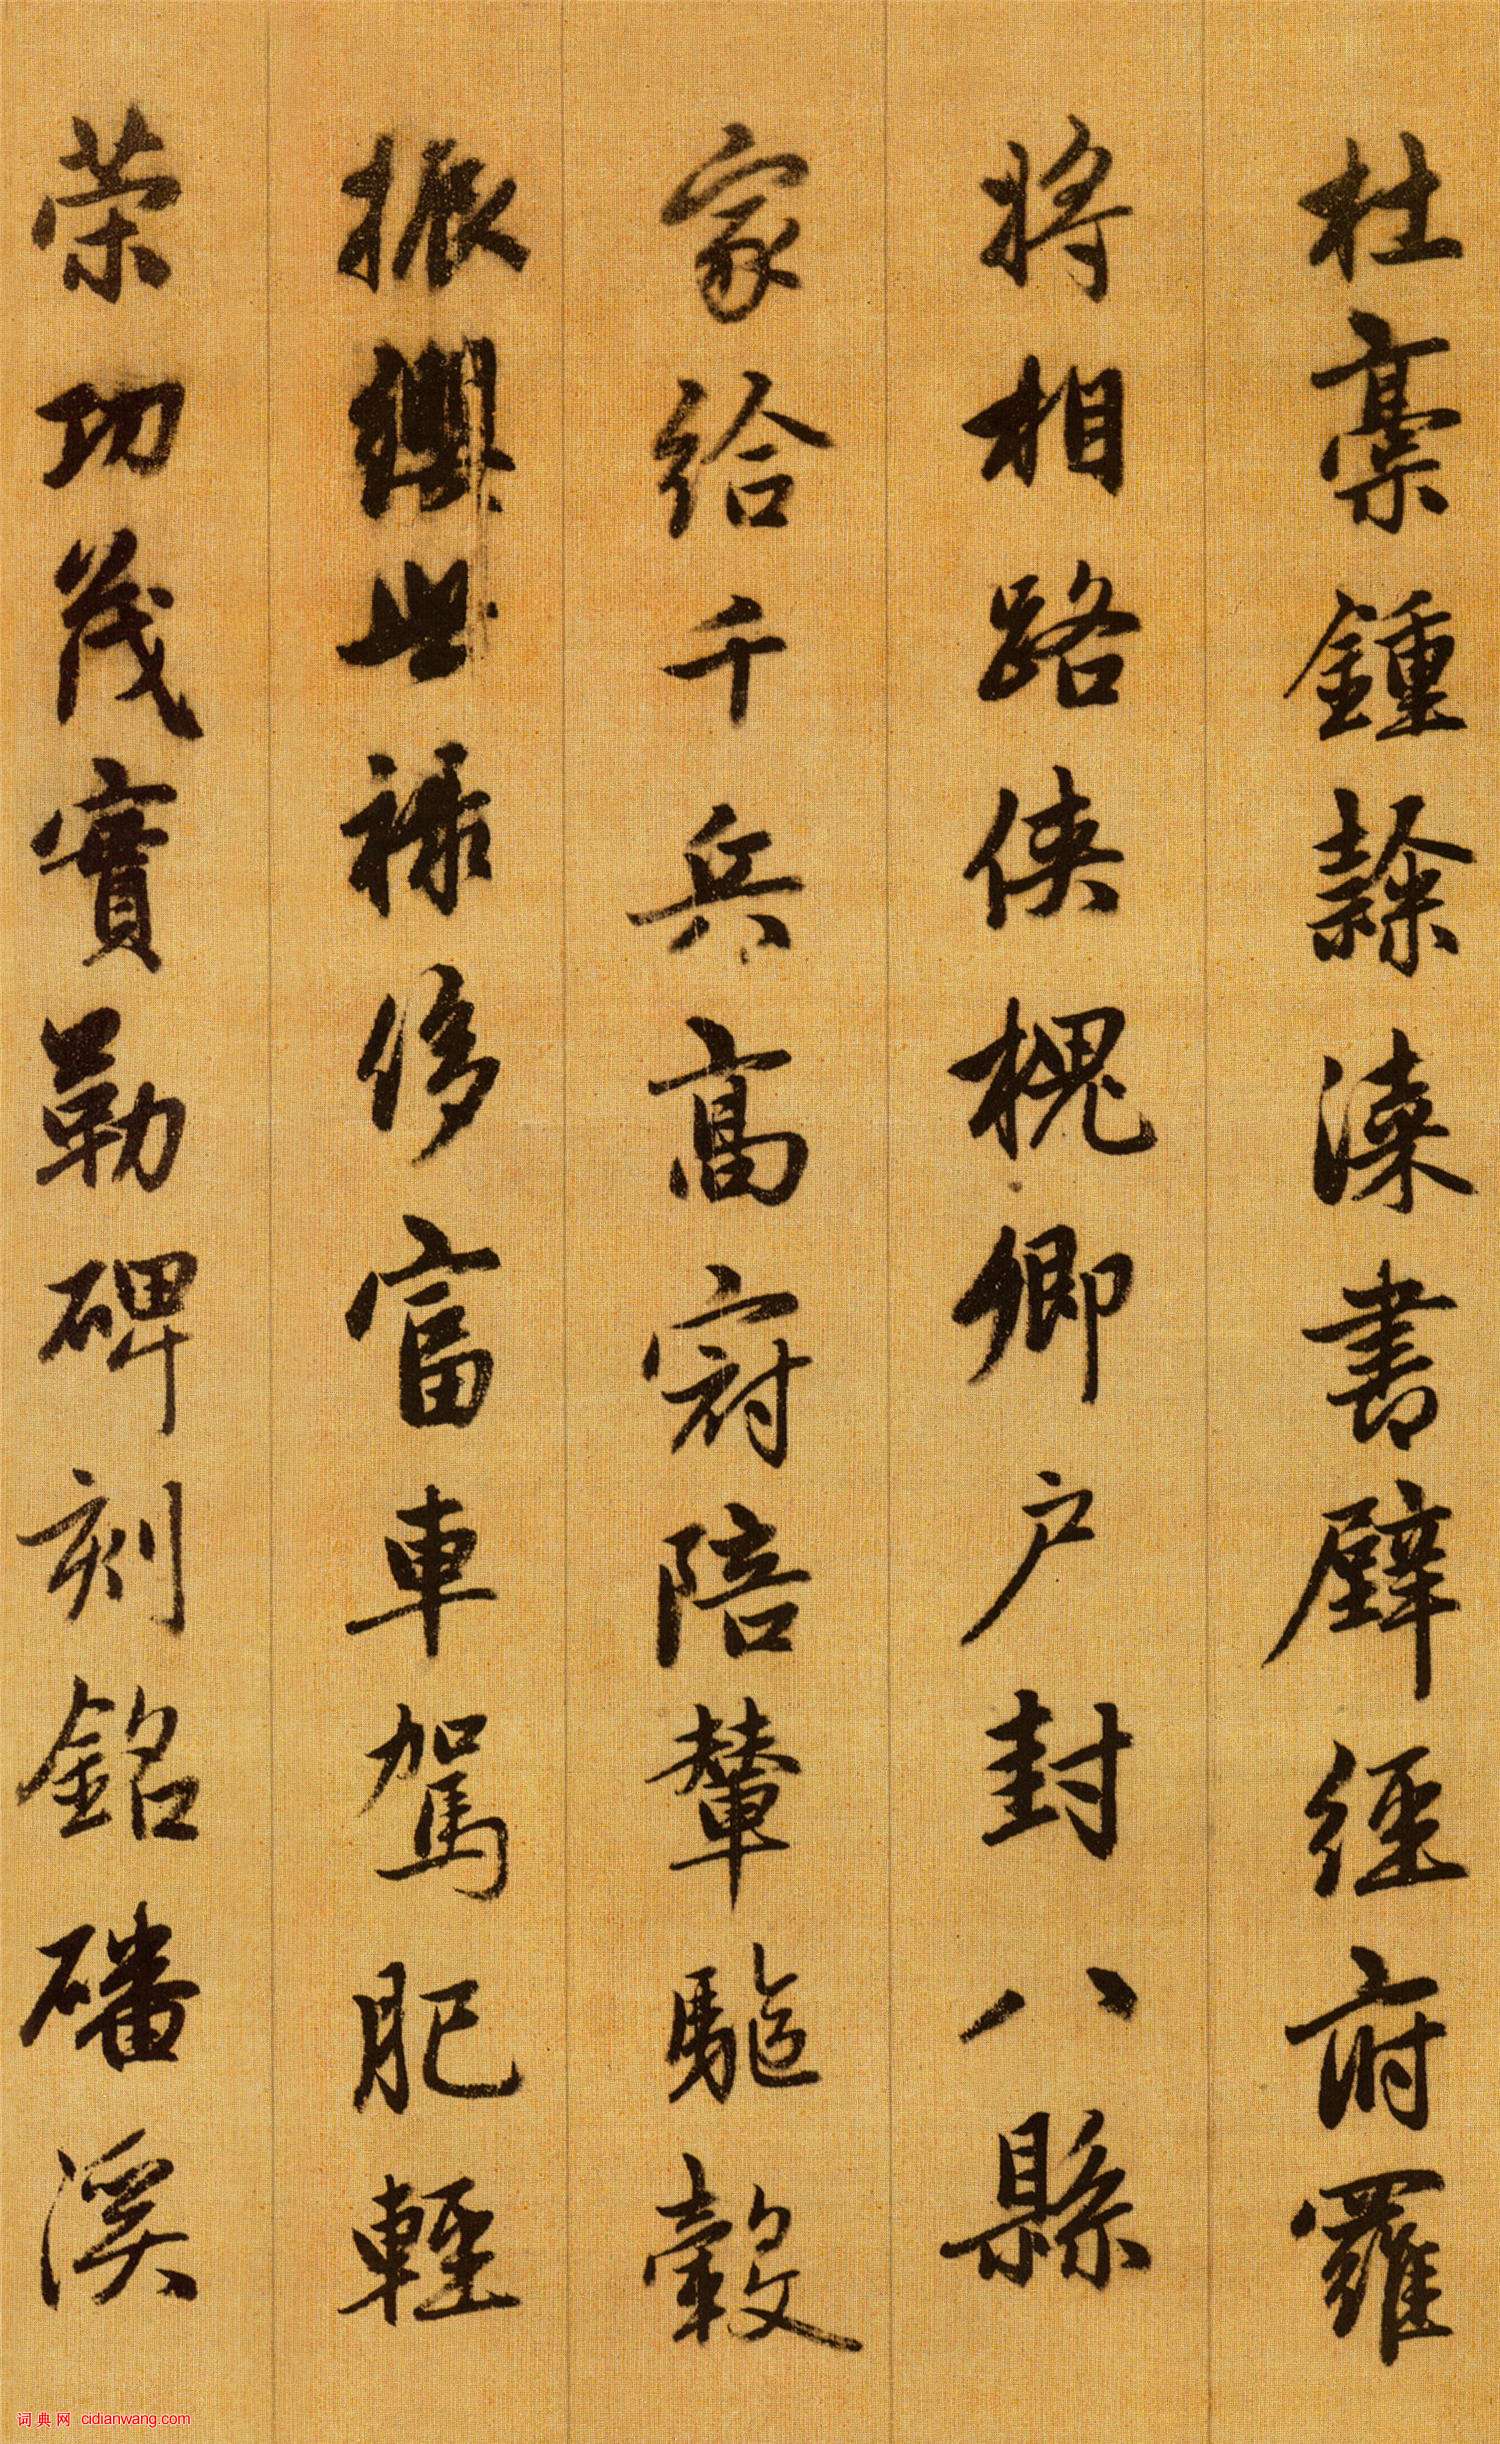 杜稾鍾隸漆書壁經府羅
將相路俠槐卿户封八縣
家給千兵高冠陪輦驅轂
振纓世祿侈富車駕肥輕
策功茂實勒碑刻銘磻溪
词典网 cidianwang.com